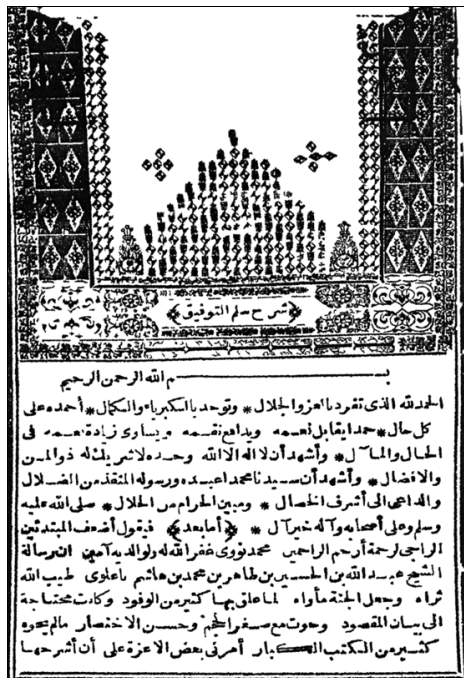 ﴿شرح سلم التوفيق﴾
بسم الله الرحمن الرحيم
الحمد لله الذى تفرد بالعز والجلال * وتوحد بالكبرياء والكمال * أحمده على
كل حال * حمدا يقابل نعمه ويدافع نقمه ويساوى زيادة نعمه فى
الحال والمآل * وأشهد أن لا اله الا الله وحده لا شريك له ذو المن
والافضال * وأشهد أن سيدنا محمدا عبده ورسوله المنقذ من الضلال
والداعى الى أشرف الخصال * ومبين الحرام من الحلال * صلى الله عليه
وسلم وعلى أصحابه وآله خير آل * ﴿أما بعد﴾ فيقول أضعف المبتدئين
الراجى رحمة أرحم الراحمين محمد نووى غفر الله له ولوالديه آمين ان رسالة
الشيخ عبد الله بن الحسين بن طاهر بن محمد بن هاشم باعلوى طيب الله
ثراه وجعل الجنة مأواه لما علق بها كثير من الوفود وكانت محتاجة
الى بيان المقصود وحوت مع صغر الحجم وحسن الاختصار مالم يحوه
كثير من الكتب الكبار أمرنى بعض الاعزة على أن أشرحها